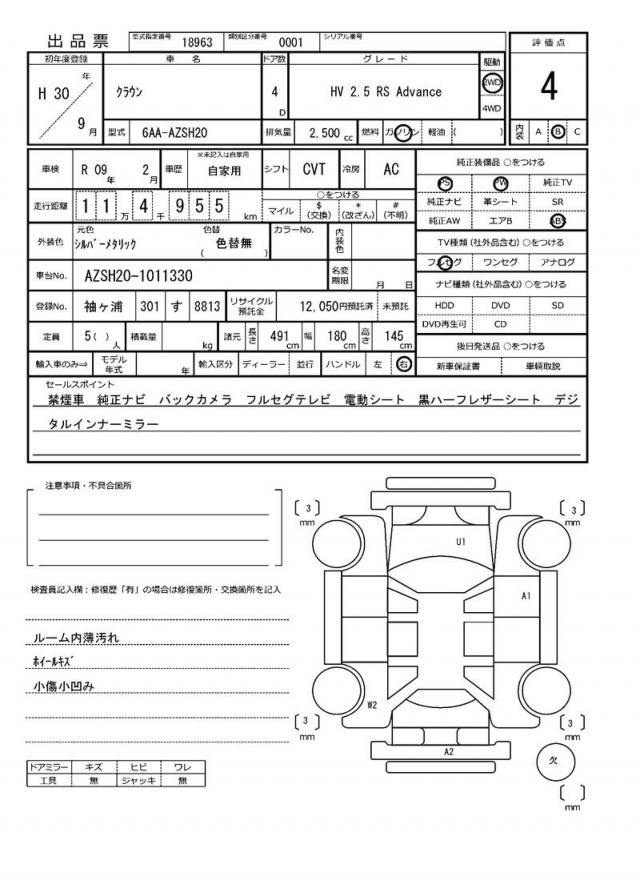 出品票 型式指定番号 18963 類別区分番号 0001 シリアル番号
初年度登録 車 名 ドア数 グレード 駆動 評価点
H 30 年 9 月 クラウン 4 D HV 2.5 RS Advance 2WD 4WD 4
型式 6AA-AZSH20 排気量 2,500 cc 燃料 ガソリン 軽油 ( ) 内装 A B C
車検 R 09 年 2 月 車歴 ※未記入は自家用 自家用 シフト CVT 冷房 AC
走行距離 1 1 万 4 千 9 5 5 km
○をつける
マイル $ (交換) * (改ざん) # (不明)
外装色 元色 シルバーメタリック 色替 ( 色替無 ) カラーNo. 内装色
車台No. AZSH20-1011330 名変期限 月 日
登録No. 袖ヶ浦 301 す 8813 リサイクル預託金 12,050円預託済 未預託
定員 5( ) 人 積載量 kg 諸元 長さ 491 cm 幅 180 cm 高さ 145 cm
輸入車のみ⇒ モデル年式 年 輸入区分 ディーラー 並行 ハンドル 左 右
純正装備品 ○をつける
PS PW 純正TV
純正ナビ 革シート SR
純正AW エアB ABS
TV種類(社外品含む)○をつける
フルセグ ワンセグ アナログ
ナビ種類(社外品含む)○をつける
HDD DVD SD
DVD再生可 CD
後日発送品 ○をつける
新車保証書 車輌取説
セールスポイント
禁煙車 純正ナビ バックカメラ フルセグテレビ 電動シート 黒ハーフレザーシート デジ
タルインナーミラー
注意事項・不具合箇所
検査員記入欄:修復歴「有」の場合は修復箇所・交換箇所を記入
ルーム内薄汚れ
ホイールキズ
小傷小凹み
ドアミラー キズ ヒビ ワレ
工具 無 ジャッキ 無
[ 3 ] mm
[ 3 ] mm
U1
A1
W2
[ 3 ] mm
[ 3 ] mm
A2
欠
[ ] mm